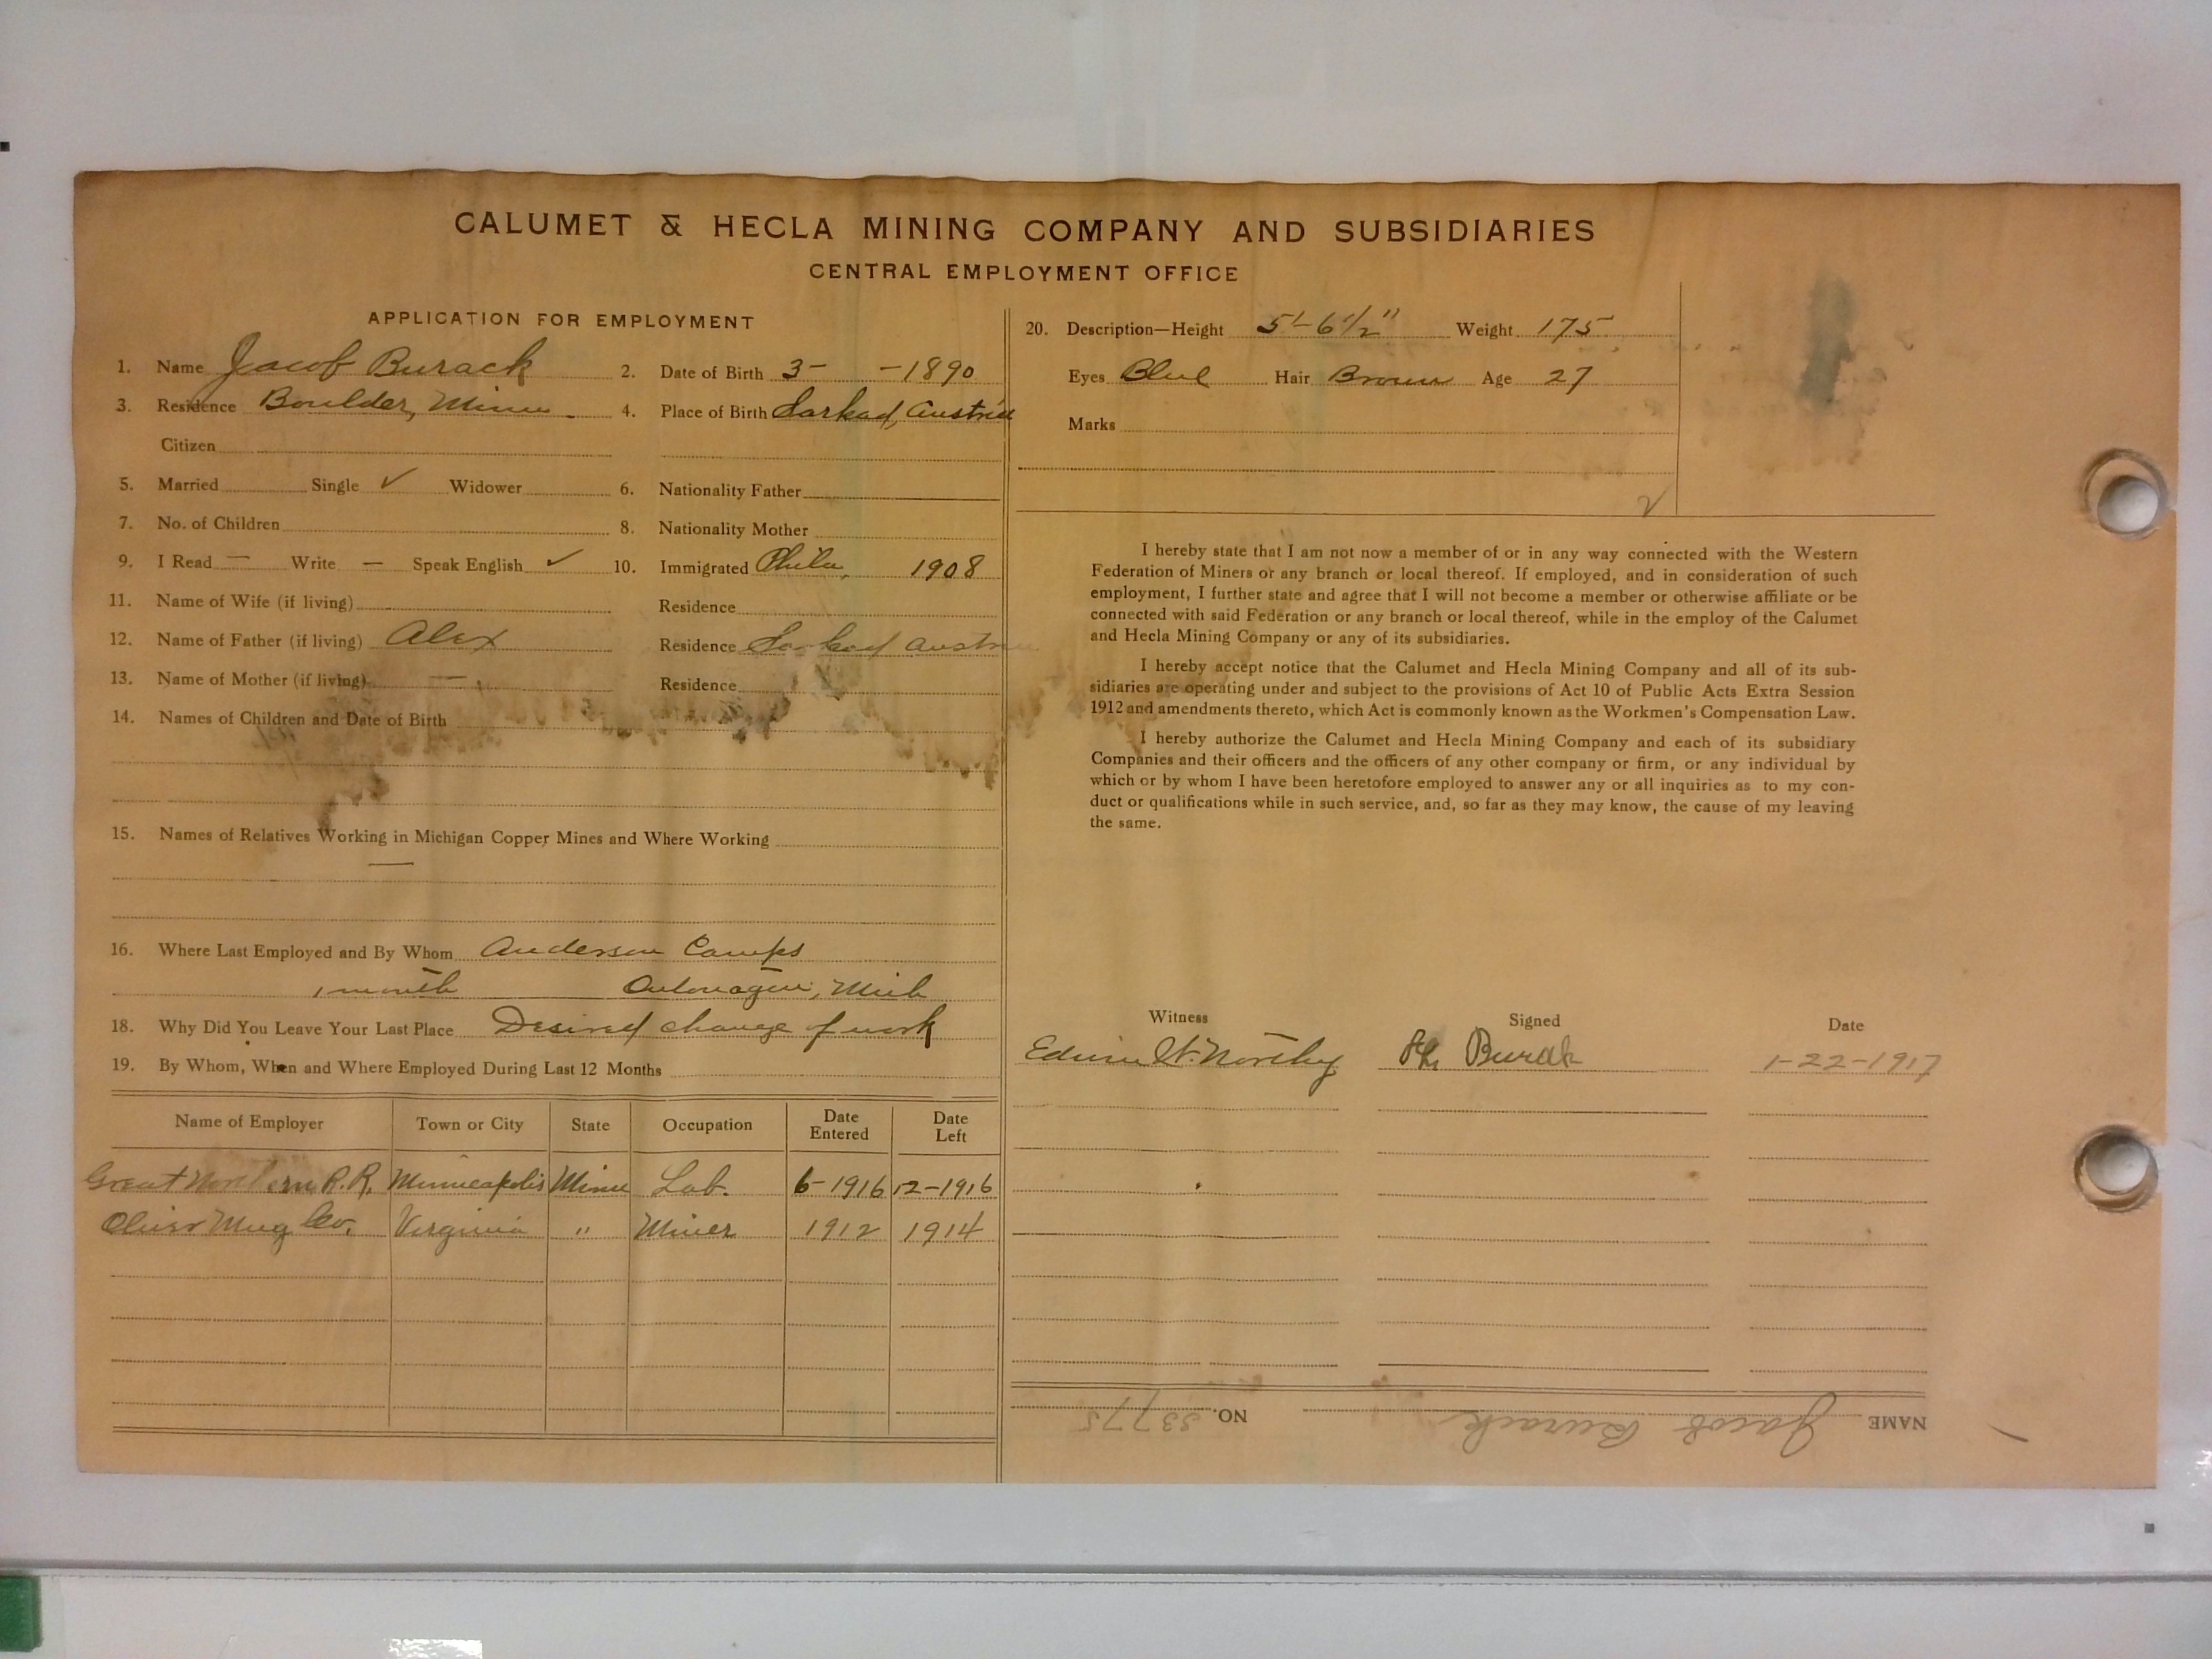 CALUMET & HECLA MINING COMPANY AND SUBSIDIARIES
CENTRAL EMPLOYMENT OFFICE
APPLICATION FOR EMPLOYMENT
1. Name Jacob Burack 2. Date of Birth 3- -1890
3. Residence Boulder, Minn. 4. Place of Birth Sarkad, Austria
Citizen
5. Married Single ✓ Widower 6. Nationality Father
7. No. of Children 8. Nationality Mother
9. I Read — Write — Speak English ✓ 10. Immigrated Phila, 1908
11. Name of Wife (if living) Residence
12. Name of Father (if living) Alex Residence Sarkad Austria
13. Name of Mother (if living) — Residence
14. Names of Children and Date of Birth
15. Names of Relatives Working in Michigan Copper Mines and Where Working
—
16. Where Last Employed and By Whom Anderson Camps
1 month Ontonagon, Mich
18. Why Did You Leave Your Last Place Desired change of work
19. By Whom, When and Where Employed During Last 12 Months
Name of Employer Town or City State Occupation Date Entered Date Left
Great Northern R.R. Minneapolis Minn Lab. 6-1916 12-1916
Oliver Mng Co. Virginia " Miner 1912 1914
20. Description—Height 5'-6 1/2" Weight 175
Eyes Blue Hair Brown Age 27
Marks
I hereby state that I am not now a member of or in any way connected with the Western
Federation of Miners or any branch or local thereof. If employed, and in consideration of such
employment, I further state and agree that I will not become a member or otherwise affiliate or be
connected with said Federation or any branch or local thereof, while in the employ of the Calumet
and Hecla Mining Company or any of its subsidiaries.
I hereby accept notice that the Calumet and Hecla Mining Company and all of its sub-
sidiaries are operating under and subject to the provisions of Act 10 of Public Acts Extra Session
1912 and amendments thereto, which Act is commonly known as the Workmen's Compensation Law.
I hereby authorize the Calumet and Hecla Mining Company and each of its subsidiary
Companies and their officers and the officers of any other company or firm, or any individual by
which or by whom I have been heretofore employed to answer any or all inquiries as to my con-
duct or qualifications while in such service, and, so far as they may know, the cause of my leaving
the same.
Witness Signed Date
Edwin W. Northey Burak 1-22-1917
NAME Jacob Burack NO. 53775